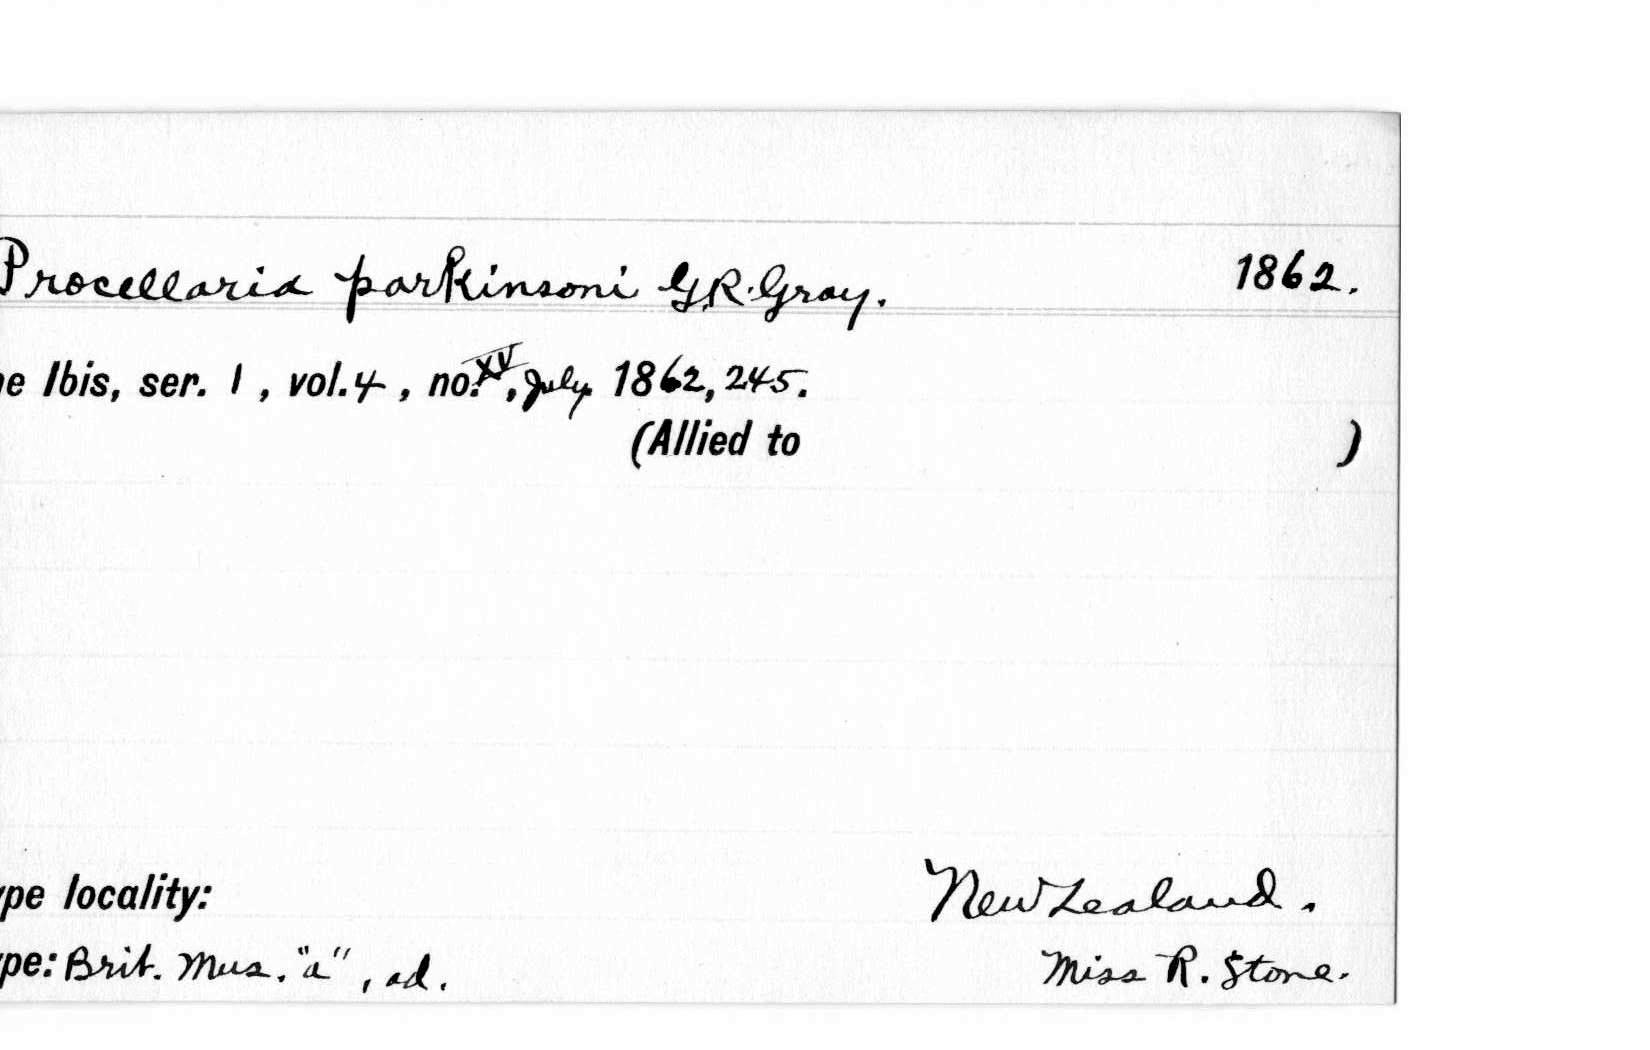 Procellaria parkinsoni G.R. Gray. 1862.
e Ibis, ser. 1, vol. 4, no. XV, July 1862, 245.
(Allied to )
ype locality: New Zealand.
ype: Brit. Mus. "a", ad. Miss R. Stone.